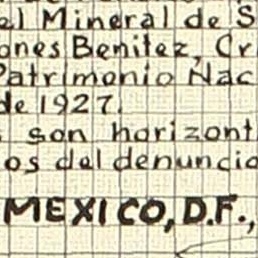 el Mineral de S
ones Benitez, Cr
Patrimonio Nac
de 1927.
s son horizont
os del denuncio
MEXICO, D.F.,